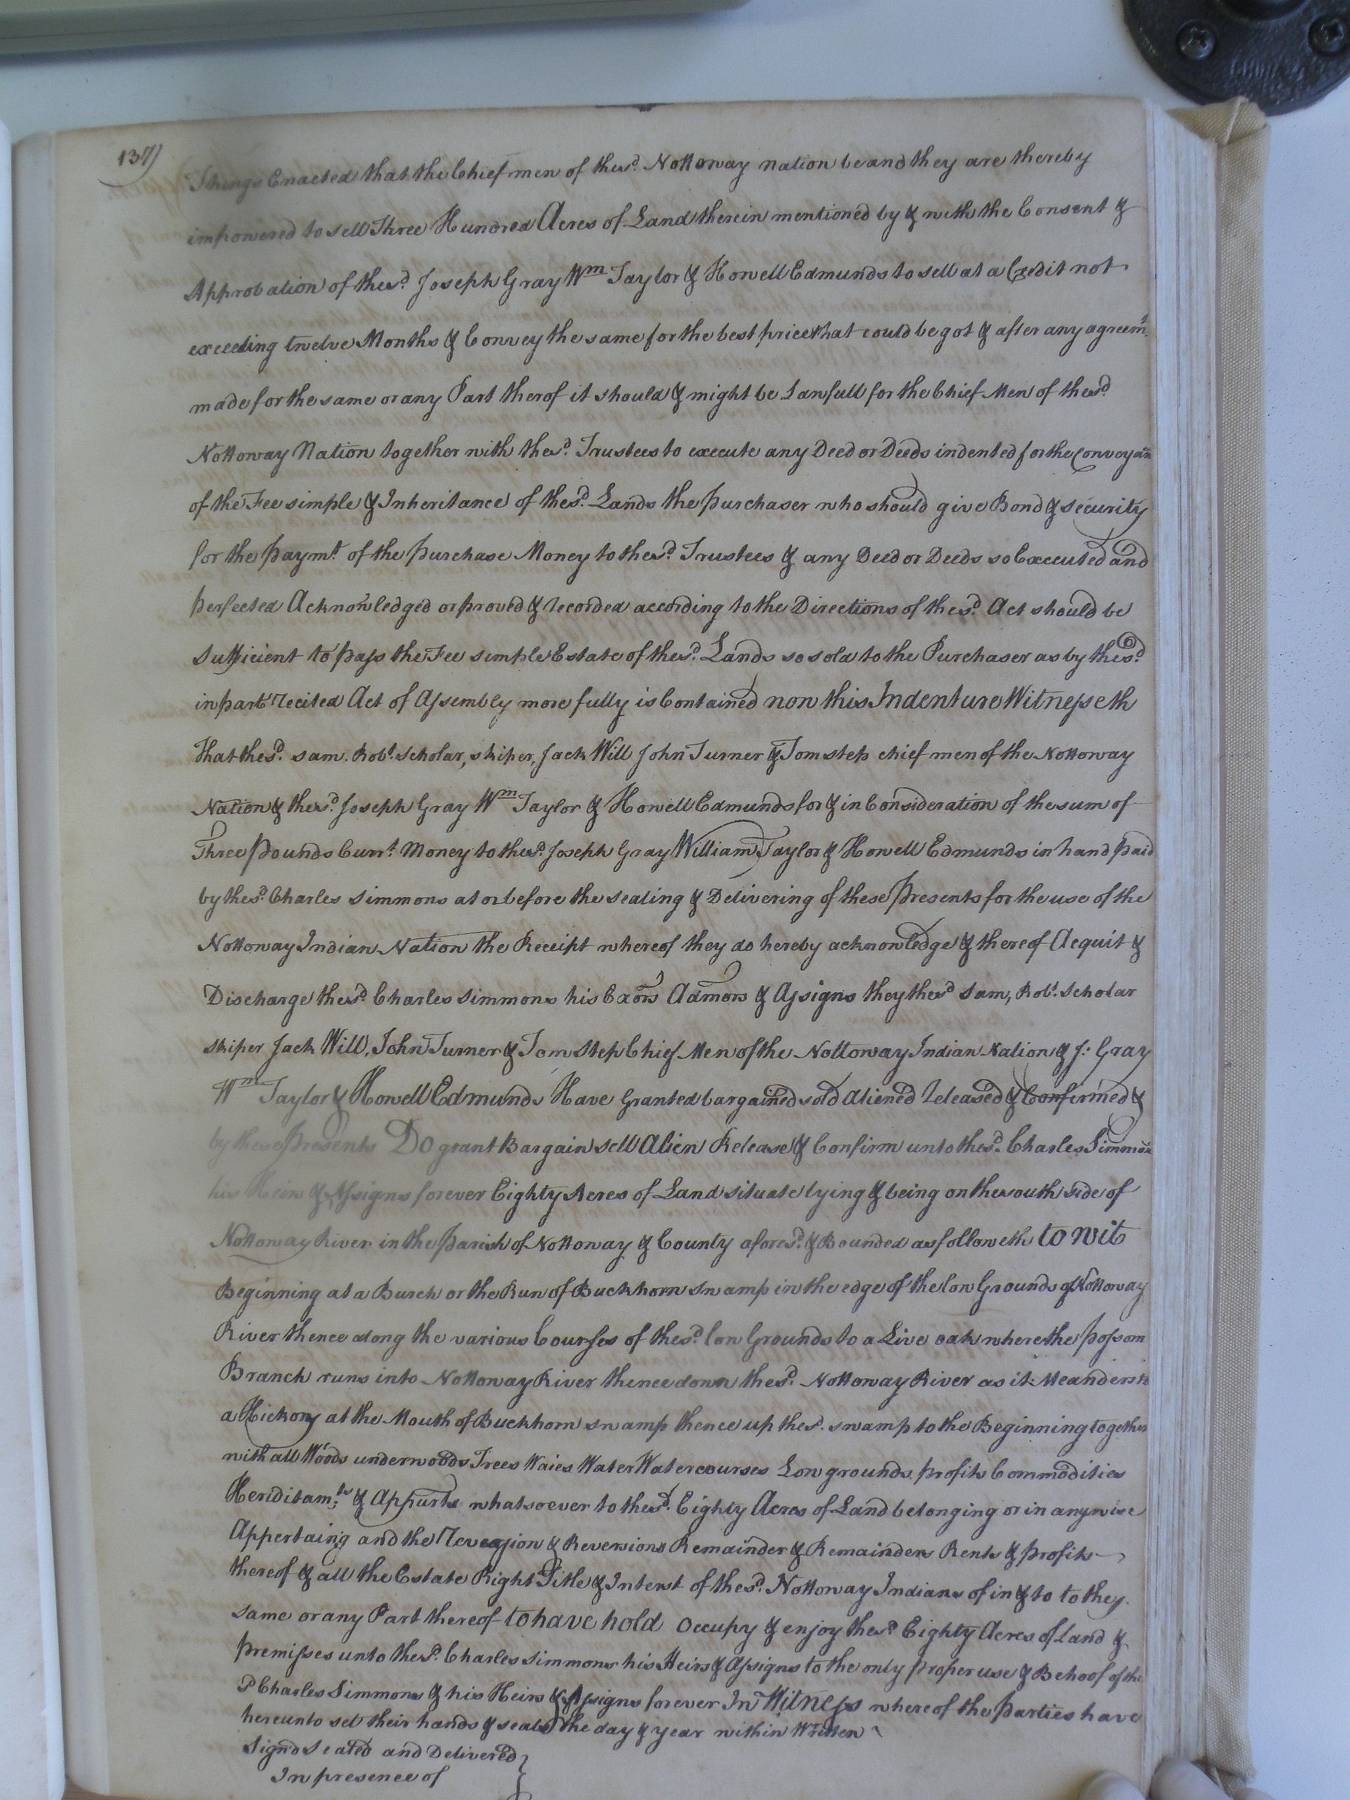 137)
Things Enacted that the Chief men of the sd. Nottoway nation be and they are thereby
impowered to sell Three Hundred Acres of Land therein mentioned by & with the Consent &
Approbation of the sd. Joseph Gray Wm Taylor & Howell Edmunds to sell at a Credit not
exceeding twelve Months & Convey the same for the best price that could be got & after any agreemt.
made for the same or any Part therof it should & might be Lawfull for the Chief Men of the sd
Nottoway Nation together with the sd. Trustees to execute any Deed or Deeds indented for the Conveyan
of the Fee simple & Inheritance of the sd. Lands the purchaser who should give Bond & security
for the paymt. of the purchase Money to the sd. Trustees & any Deed or Deeds so Executed and
perfected Acknowledged or proved & recorded according to the Directions of the sd. Act should be
Sufficient to pass the Fee simple Estate of the sd. Lands so sold to the Purchaser as by the sd.
in part recited Act of Assembly more fully is Contained now this Indenture Witnesseth
that the sd. sam. Robt. Scholar, skiper, Jack Will John Turner & Tom step chief men of the Nottoway
Nation & the sd. Joseph Gray Wm Taylor & Howell Edmunds for & in Consideration of the sum of
Three pounds Curr.t Money to the sd. Joseph Gray William Taylor & Howell Edmunds in hand paid
by the sd. Charles Simmons at or before the sealing & Delivering of these presents for the use of the
Nottoway Indian Nation the Receipt whereof they do hereby acknowledge & thereof Acquit &
Discharge the sd. Charles Simmons his Exors Admors & Assigns they the sd Sam, Robt. Scholar
skiper Jack Will, John Turner & Tom Step Chief Men of the Nottoway Indian Nation & J: Gray
Wm Taylor & Howell Edmunds Have Granted bargained sold aliened released & Confirmed &
by these presents Do grant Bargain sell Alien Release & Confirm unto the sd. Charles Simmons
his Heirs & Assigns forever Eighty Acres of Land situate lying & being on the south side of
Nottoway River in the parish of Nottoway & County aforesd. & Bounded as followeth to wit
Beginning at a Burch or the Run of Buckhorn Swamp in the edge of the low Grounds of Nottoway
River thence along the various Courses of the sd. low Grounds to a Live oak where the possom
Branch runs into Nottoway River thence down the sd. Nottoway River as it Meanders to
a Hickory at the Mouth of Buckhorn swamp thence up the sd. swamp to the Beginning together
with all Woods underwoods Trees Waies Water Watercourses Low grounds, profits Commodities
Heriditamts & Appurts whatsoever to the sd. Eighty Acres of Land belonging or in anywise
Appertaing and the & Reversions Remainder & Remainders Rents & profits
thereof & all the Estate Right Title & Interst of the sd. Nottoway Indians of in & to to they
same or any Part thereof to have hold occupy & enjoy the sd. Eighty Acres of Land &
premisses unto the sd. Charles Simmons his Heirs & Assigns to the only proper use & Behoof of the
sd Charles Simmons & his Heirs & Assigns forever In Witness whereof the parties have
hereunto set their hands & seals the day & year within Written
Signd Sealed and Delivered
In presence of